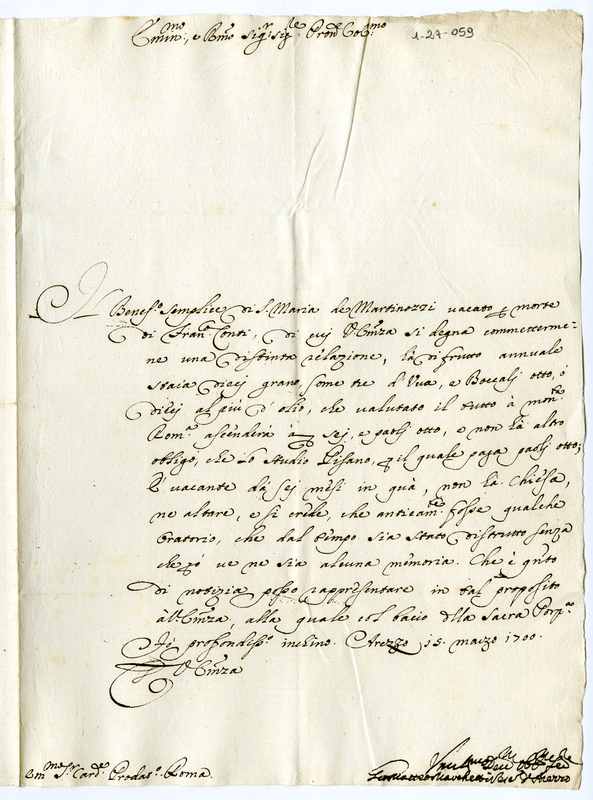 Emin:mo, e Rmo Sigr Sigr Prone Col:mo
1-27-059
Il Benef.o semplice di S. Maria de Martinozzi vacato p morte
di Fran.o Conti, di cuj V Emza si degna commetterme-
ne una distinta relazione, hà di frutto annuale
staia diecj grano, some tre d'Vua, e Boccalj otto, ò
diecj al più d'olio, che valutato il tutto à mon.ta
Rom.a ascenderà à sej, e paolj otto, e non hà altro
obligo, che lo Studio Pisano, p il quale paga paolj otto;
È vacante da sej mesi in quà, non hà Chiesa,
ne altare, e si crede, che anticam.te fosse qualche
Oratorio, che dal tempo sia stato distrutto senza
che pò ve ne sia alcuna memoria. Che è qnto
di notizia posso rappresentare in tal proposito
all'Emza, alla quale col bacio dlla Sacra Porp.a
profondiss.e inchino. Arezzo 15. marzo 1700.
D V Emza
Em.mo Sr Card.e Prodat.o Roma.